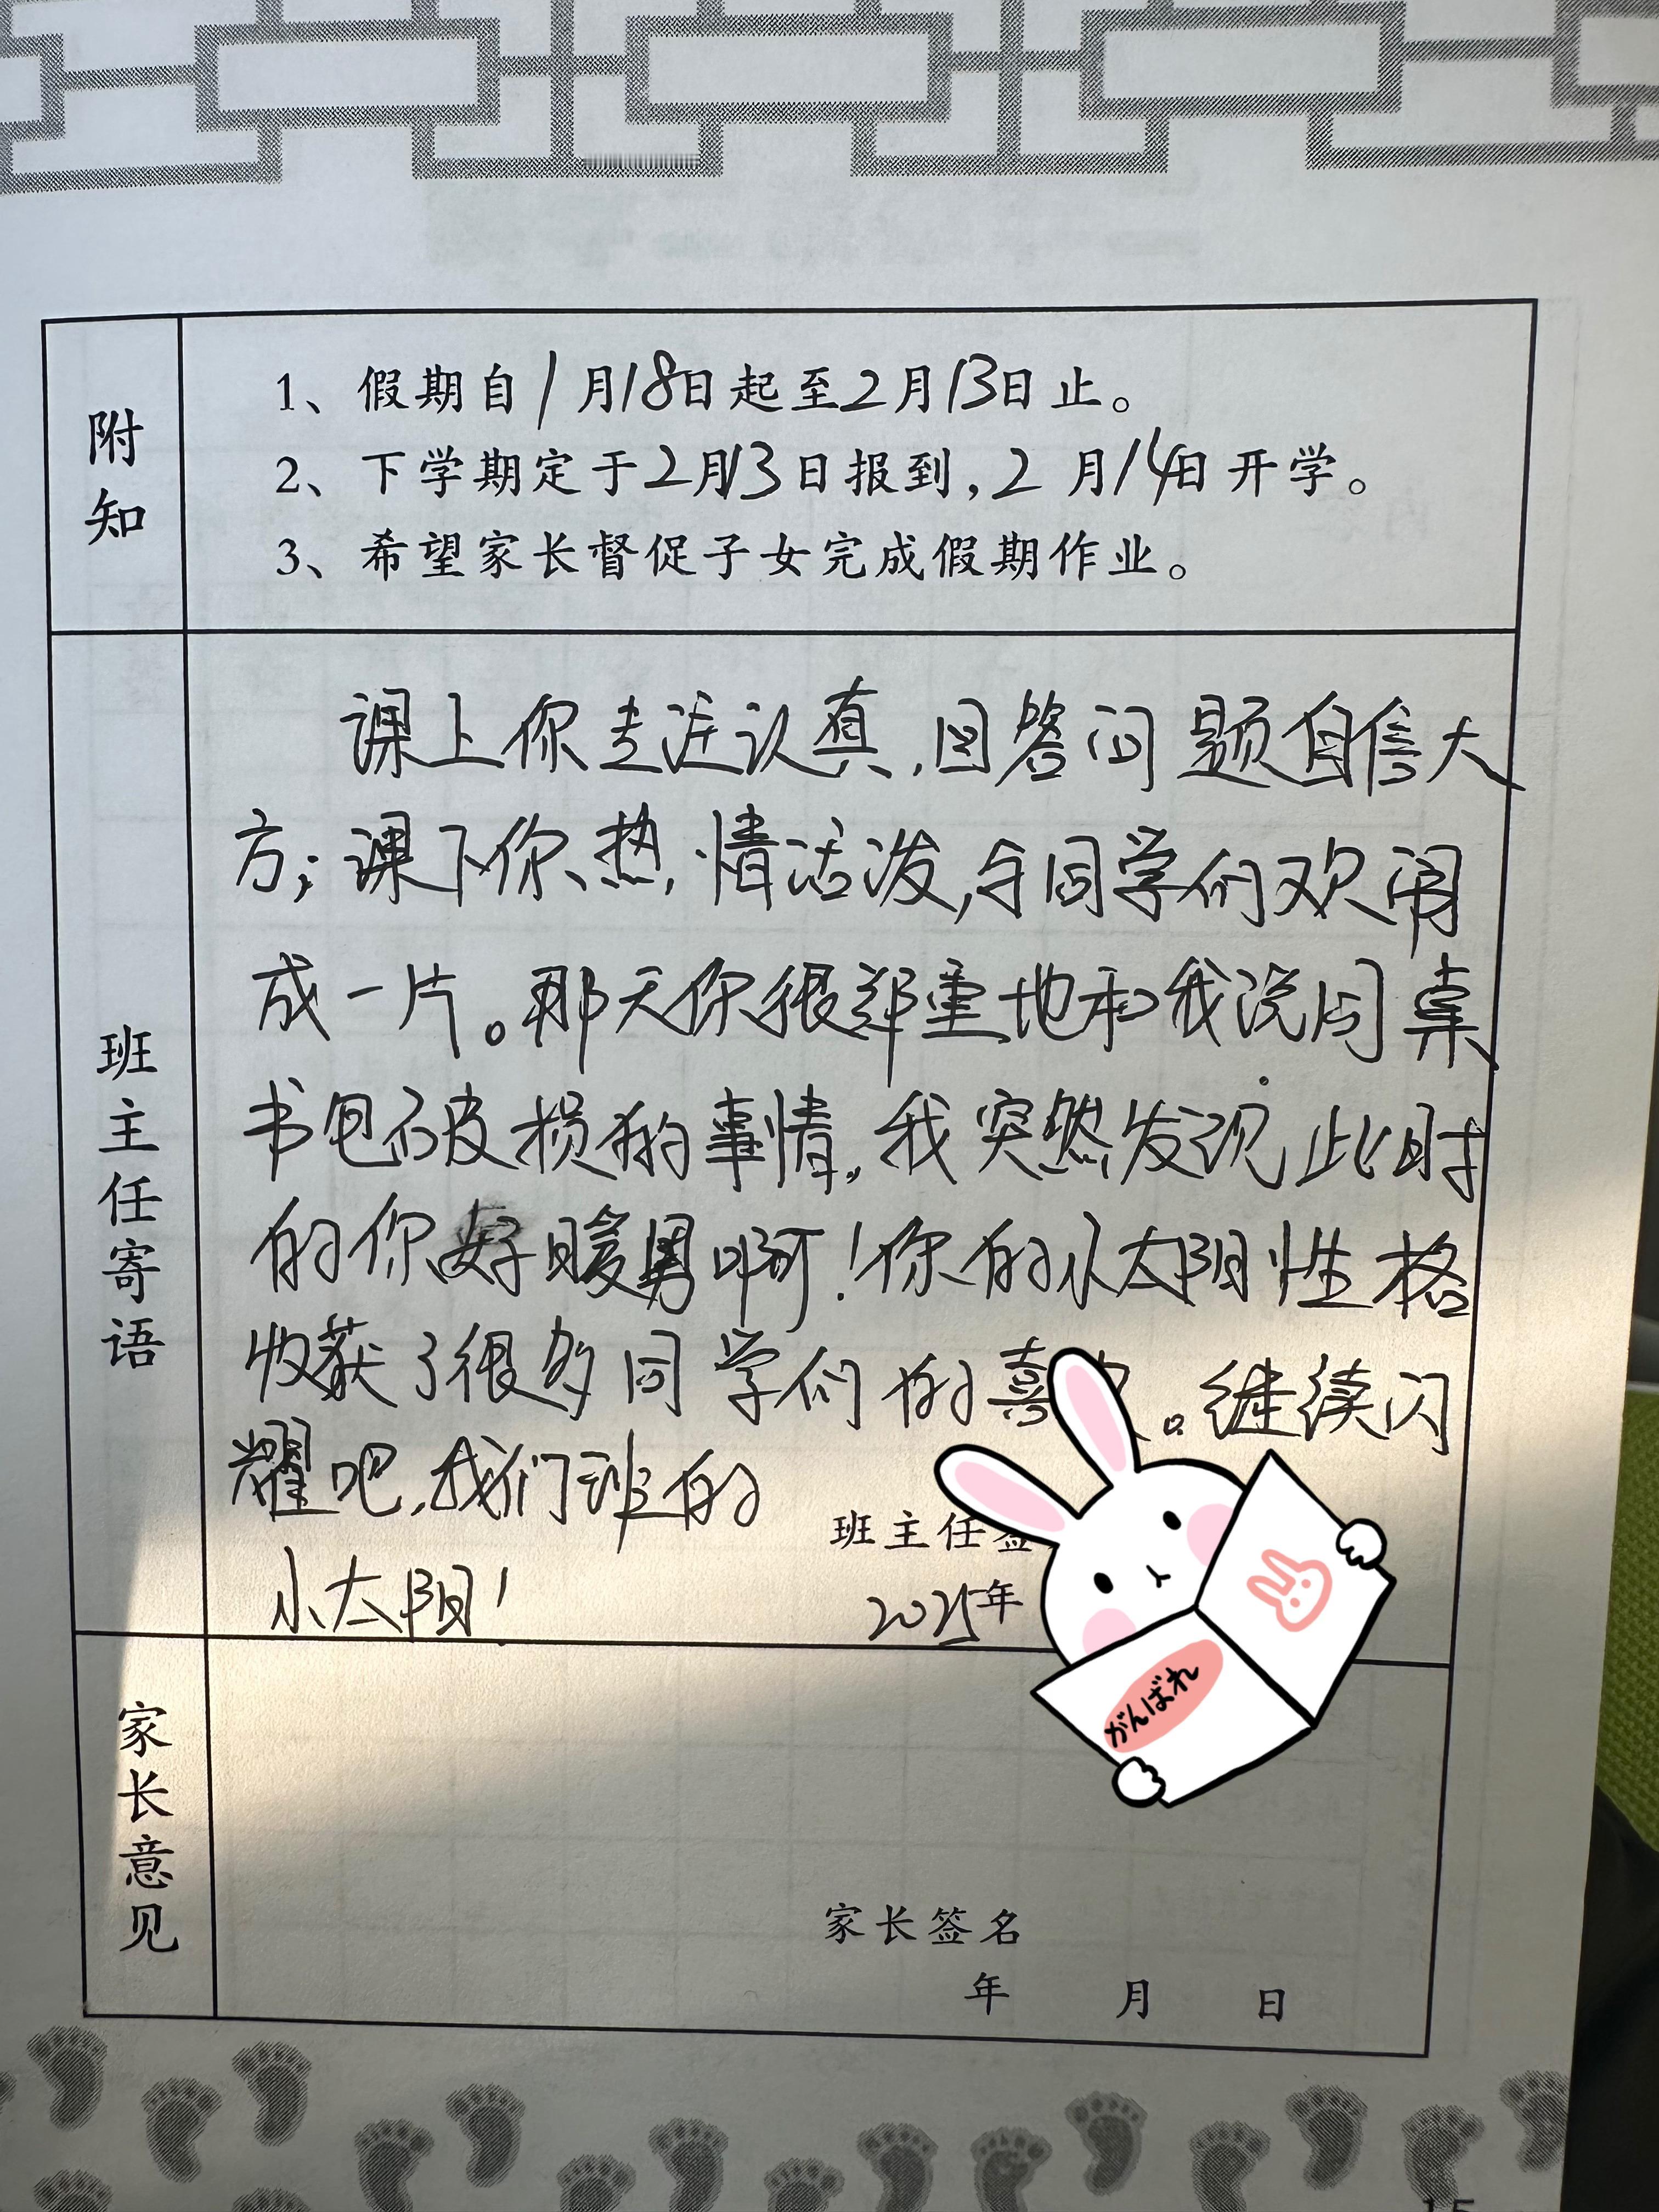 附知
1、假期自1月18日起至2月13日止。
2、下学期定于2月13日报到,2月14日开学。
3、希望家长督促子女完成假期作业。
班主任寄语
课上你专注认真,回答问题自信大
方;课下你热情活泼,与同学们欢闹
成一片。那天你很郑重地和我说同桌
书包破损的事情,我突然发现此时
的你好暖男啊!你的小太阳性格
收获了很多同学们的喜。继续闪
耀吧,我们班的
小太阳!
班主任签
2025年
がんばれ
家长意见
家长签名
年 月 日